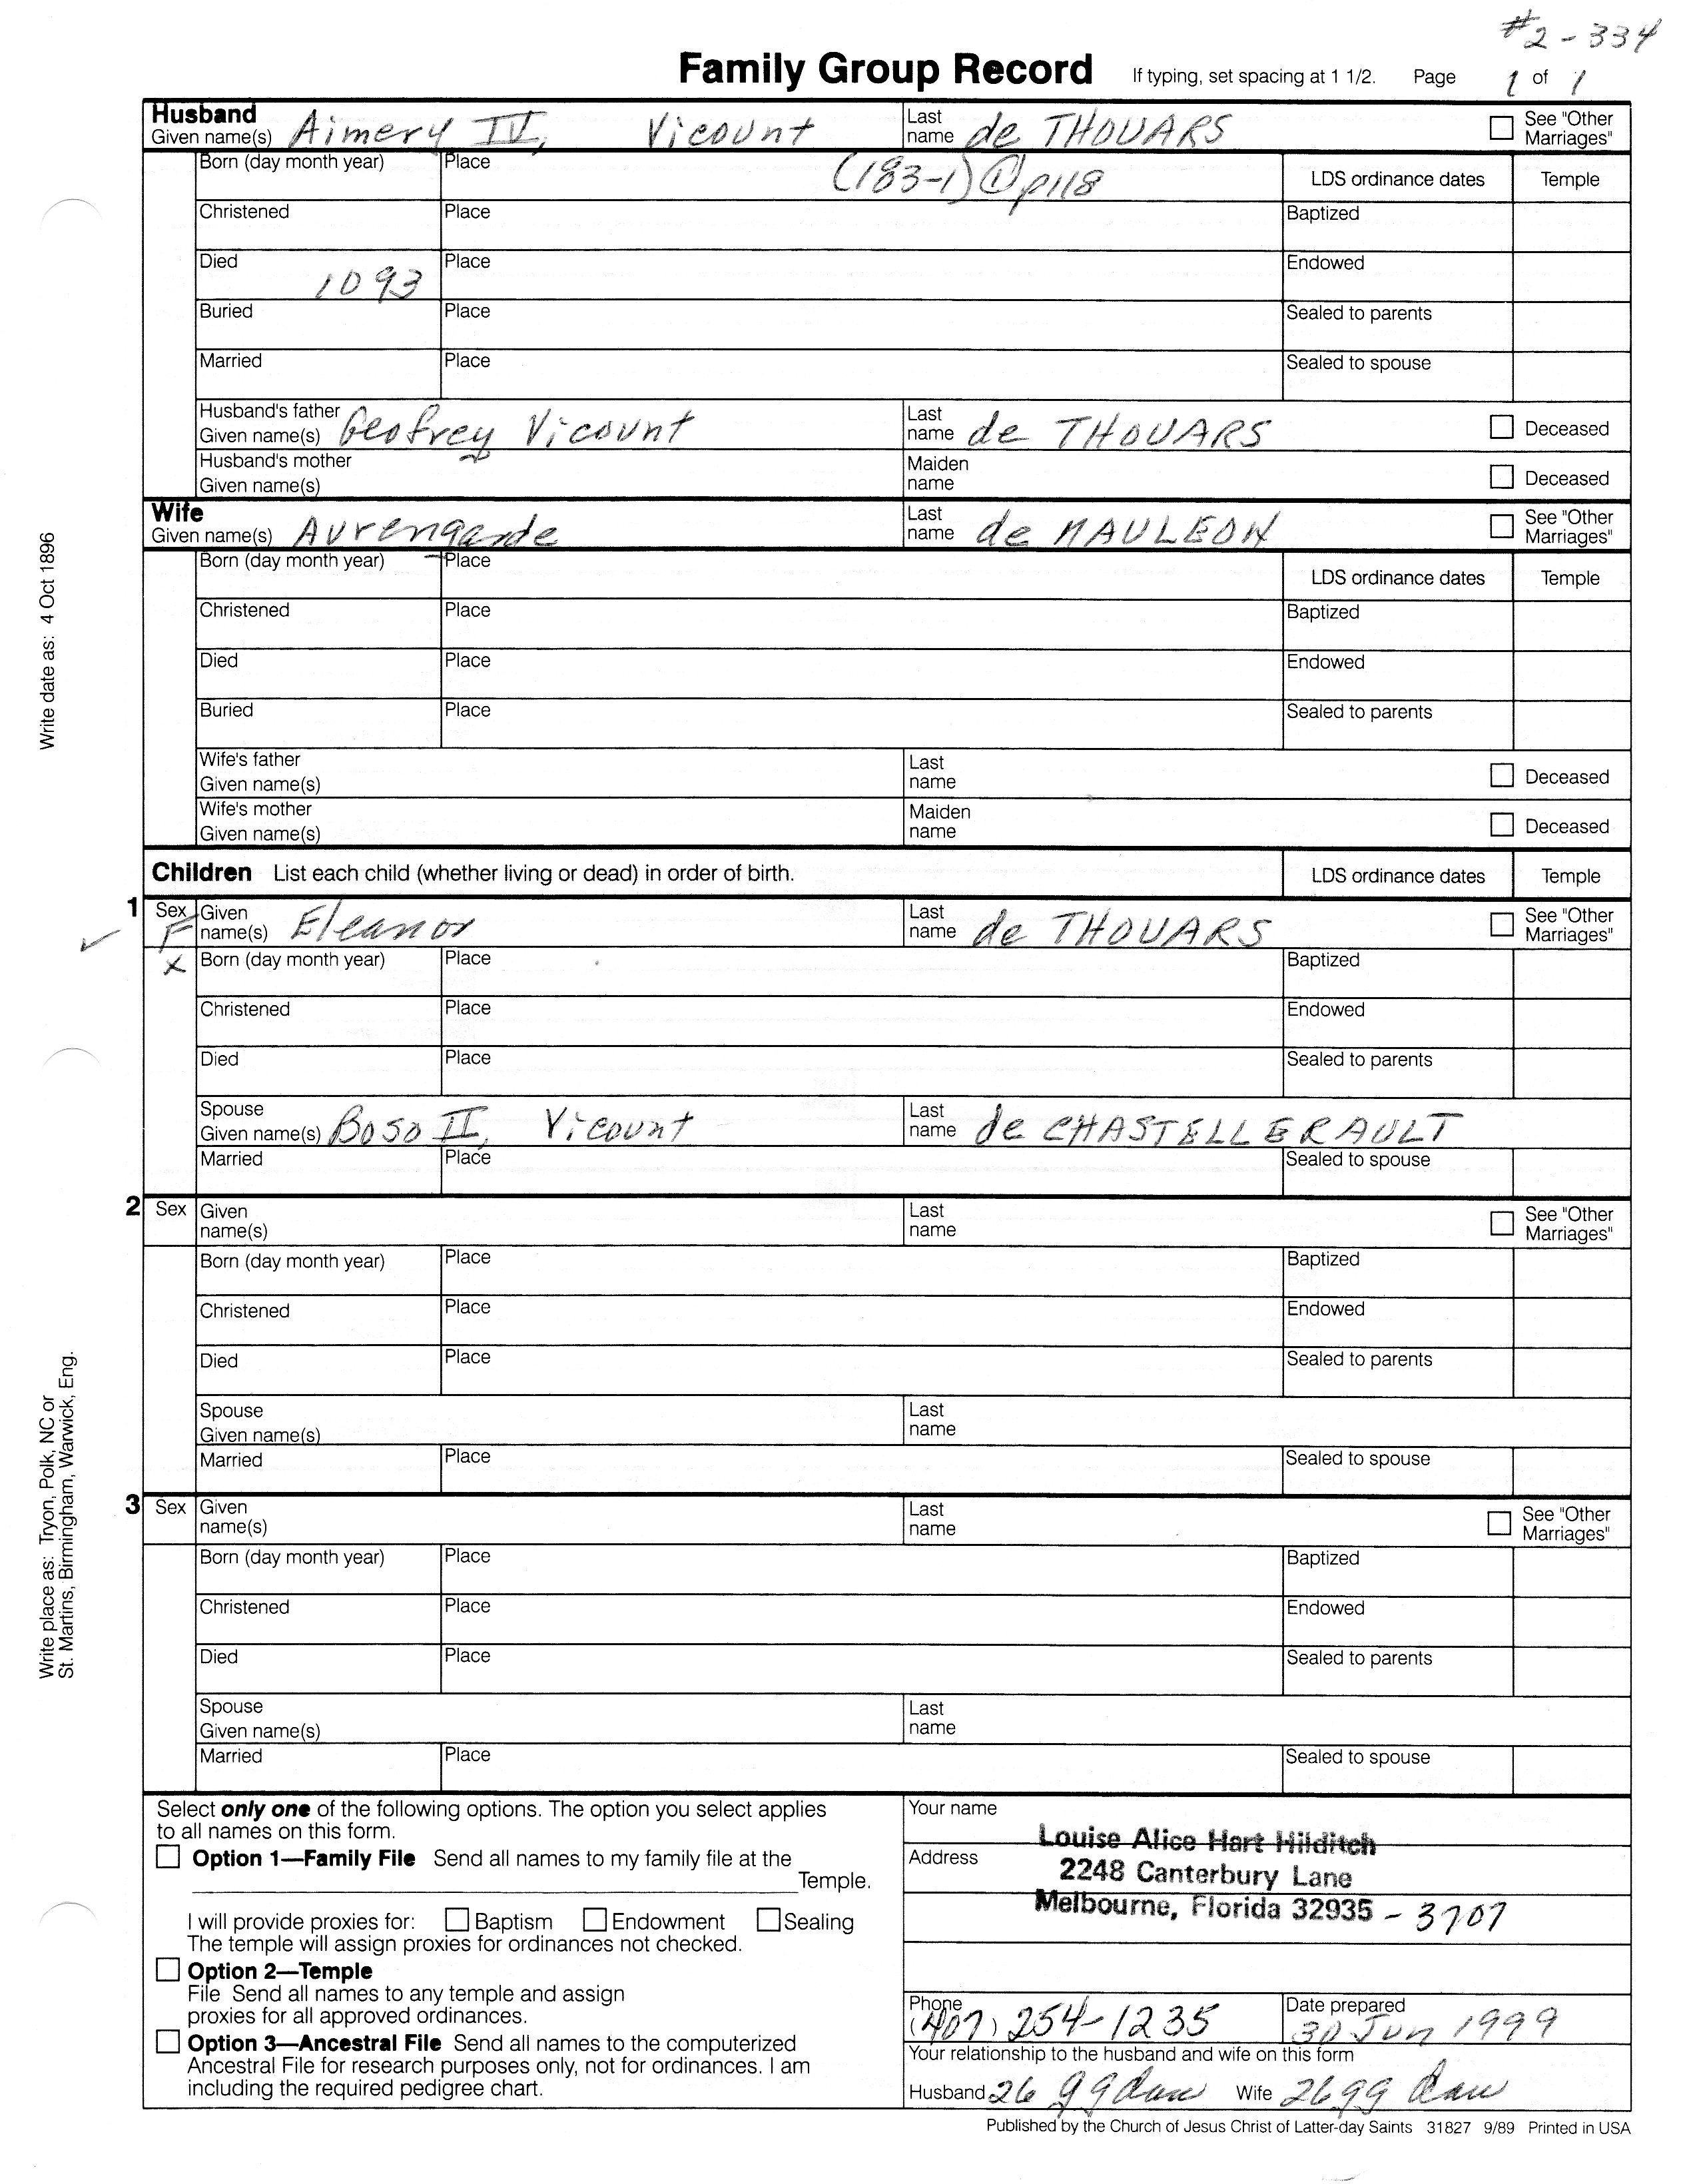 #2-334
Family Group Record If typing, set spacing at 1 1/2. Page 1 of 1
Husband
Given name(s) Aimery IV, Vicount Last name de THOUARS See "Other Marriages"
Born (day month year) Place (183-1) ① p118 LDS ordinance dates Temple
Christened Place Baptized
Died 1093 Place Endowed
Buried Place Sealed to parents
Married Place Sealed to spouse
Husband's father Given name(s) Geofrey Vicount Last name de THOUARS Deceased
Husband's mother Given name(s) Maiden name Deceased
Wife
Given name(s) Aurengarde Last name de MAULEON See "Other Marriages"
Born (day month year) Place LDS ordinance dates Temple
Christened Place Baptized
Died Place Endowed
Buried Place Sealed to parents
Wife's father Given name(s) Last name Deceased
Wife's mother Given name(s) Maiden name Deceased
Children List each child (whether living or dead) in order of birth. LDS ordinance dates Temple
1 Sex F Given name(s) Eleanor Last name de THOUARS See "Other Marriages"
X Born (day month year) Place Baptized
Christened Place Endowed
Died Place Sealed to parents
Spouse Given name(s) Boso II, Vicount Last name de CHASTELLERAULT
Married Place Sealed to spouse
2 Sex Given name(s) Last name See "Other Marriages"
Born (day month year) Place Baptized
Christened Place Endowed
Died Place Sealed to parents
Spouse Given name(s) Last name
Married Place Sealed to spouse
3 Sex Given name(s) Last name See "Other Marriages"
Born (day month year) Place Baptized
Christened Place Endowed
Died Place Sealed to parents
Spouse Given name(s) Last name
Married Place Sealed to spouse
Select only one of the following options. The option you select applies
to all names on this form.
Option 1—Family File Send all names to my family file at the
Temple.
I will provide proxies for: Baptism Endowment Sealing
The temple will assign proxies for ordinances not checked.
Option 2—Temple
File Send all names to any temple and assign
proxies for all approved ordinances.
Option 3—Ancestral File Send all names to the computerized
Ancestral File for research purposes only, not for ordinances. I am
including the required pedigree chart.
Your name Louise Alice Hart Hilditch
Address 2248 Canterbury Lane
Melbourne, Florida 32935 - 3707
Phone (407) 254-1235 Date prepared 30 Jun 1999
Your relationship to the husband and wife on this form
Husband 26 gg dau Wife 26 gg dau
Published by the Church of Jesus Christ of Latter-day Saints 31827 9/89 Printed in USA
Write date as: 4 Oct 1896
Write place as: Tryon, Polk, NC or
St. Martins, Birmingham, Warwick, Eng.